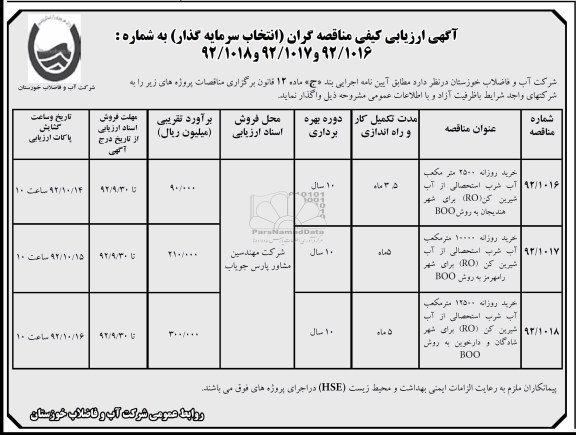 آگهی ارزیابی کیفی مناقصه گران (انتخاب سرمایه گذار) به شماره :
۹۲/۱۰۱۶ و ۹۲/۱۰۱۷ و ۹۲/۱۰۱۸
شرکت آب و فاضلاب خوزستان
شرکت آب و فاضلاب خوزستان درنظر دارد مطابق آیین نامه اجرایی بند «ج» ماده ۱۲ قانون برگزاری مناقصات پروژه های زیر را به
شرکتهای واجد شرایط باظرفیت آزاد و با اطلاعات عمومی مشروحه ذیل واگذار نماید.
شماره مناقصه
عنوان مناقصه
مدت تکمیل کار و راه اندازی
دوره بهره برداری
محل فروش اسناد ارزیابی
برآورد تقریبی (میلیون ریال)
مهلت فروش اسناد ارزیابی از تاریخ درج آگهی
تاریخ وساعت گشایش پاکات ارزیابی
۹۲/۱۰۱۶
خرید روزانه ۲۵۰۰ متر مکعب
آب شرب استحصالی از آب
شیرین کن(RO) برای شهر
هندیجان به روش BOO
۳.۵ ماه
۱۰ سال
شرکت مهندسین
مشاور پارس جویاب
۹۰/۰۰۰
تا ۹۲/۹/۳۰
۹۲/۱۰/۱۴ ساعت ۱۰
۹۲/۱۰۱۷
خرید روزانه ۱۰۰۰۰ مترمکعب
آب شرب استحصالی از آب
شیرین کن (RO) برای شهر
رامهرمز به روش BOO
۵ماه
۱۰ سال
۲۱۰/۰۰۰
تا ۹۲/۹/۳۰
۹۲/۱۰/۱۵ ساعت ۱۰
۹۲/۱۰۱۸
خرید روزانه ۱۲۵۰۰ مترمکعب
آب شرب استحصالی از آب
شیرین کن (RO) برای شهر
شادگان و دارخوین به روش
BOO
۵ ماه
۱۰ سال
۳۰۰/۰۰۰
تا ۹۲/۹/۳۰
۹۲/۱۰/۱۶ ساعت ۱۰
پیمانکاران ملزم به رعایت الزامات ایمنی بهداشت و محیط زیست (HSE) دراجرای پروژه های فوق می باشند.
روابط عمومی شرکت آب و فاضلاب خوزستان
ParsNamadData